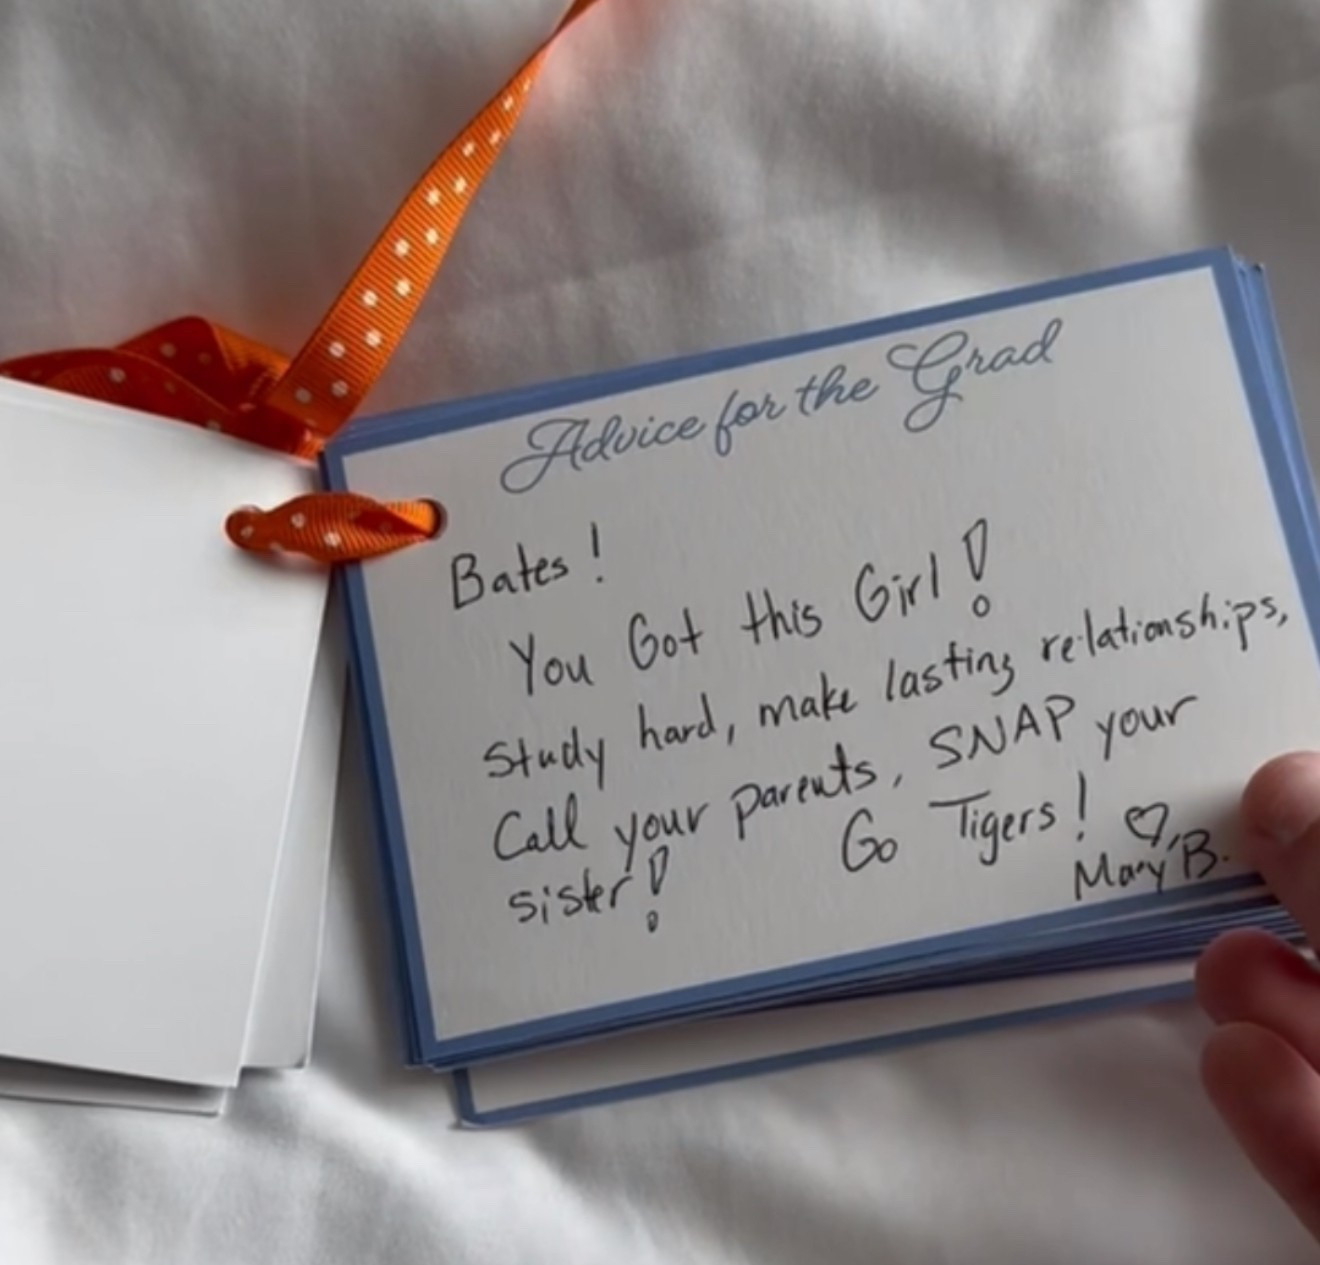 Advice for the Grad
Bates!
You Got this Girl!
Study hard, make lasting relationships,
Call your parents, SNAP your
sister! Go Tigers! ♡,
Mary B.